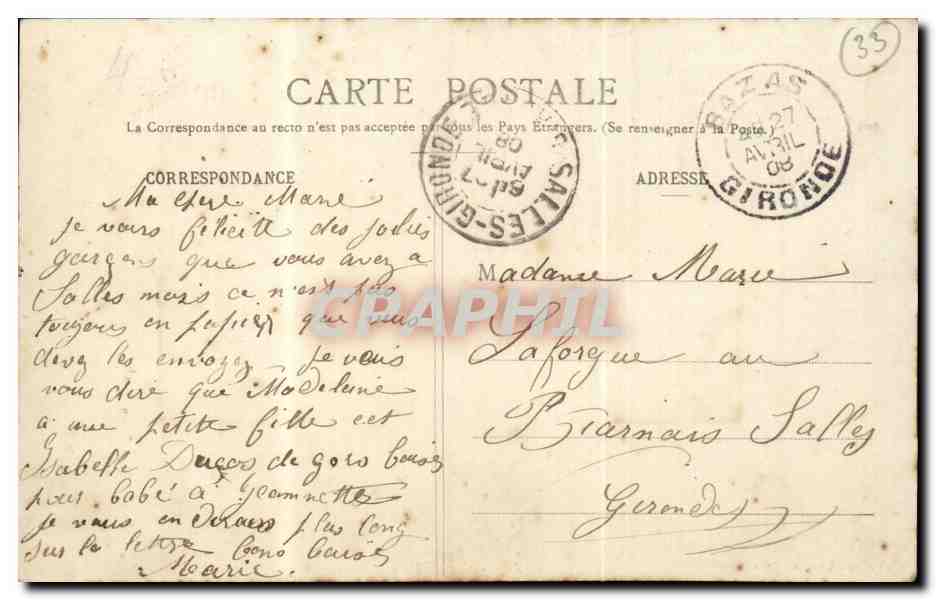 33
CARTE POSTALE
La Correspondance au recto n'est pas acceptée par tous les Pays Étrangers. (Se renseigner à la Poste.)
BAZAS
27
AVRIL
08
GIRONDE
SALLES-GIRONDE
27
AVRIL
08
CORRESPONDANCE
ADRESSE
Ma chere Marie
je vous félicite des jolies
garçons que vous avez a
Salles mais ce n'est pas
toujours en papier que vous
devez les envoyez je vais
vous dire que Madeleine
a une petite fille cet
Isabelle Duços de gors baisés
pour bábé a Jeannette
je vous en plus long
sur la lettre bons baisés
Marie.
Madame Marie
Laforgue au
Biarnais Salles
Gironde
CPAPHIL